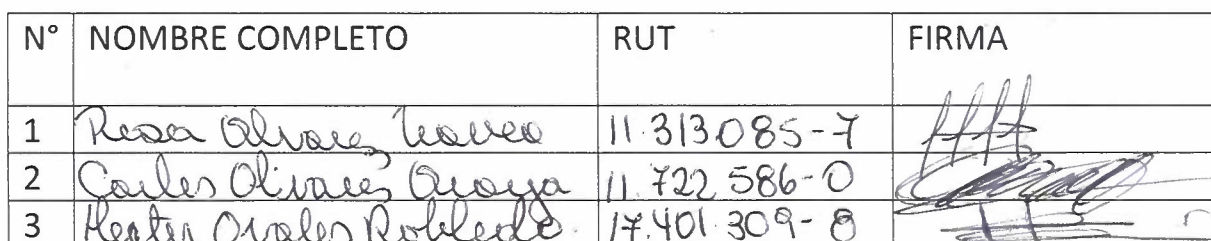 N° NOMBRE COMPLETO RUT FIRMA
1 Rosa Olivares 11.313.085-7
2 Carlos Olivares Araya 11.722.586-0
3 Ovalles Robledo 17.401.309-8